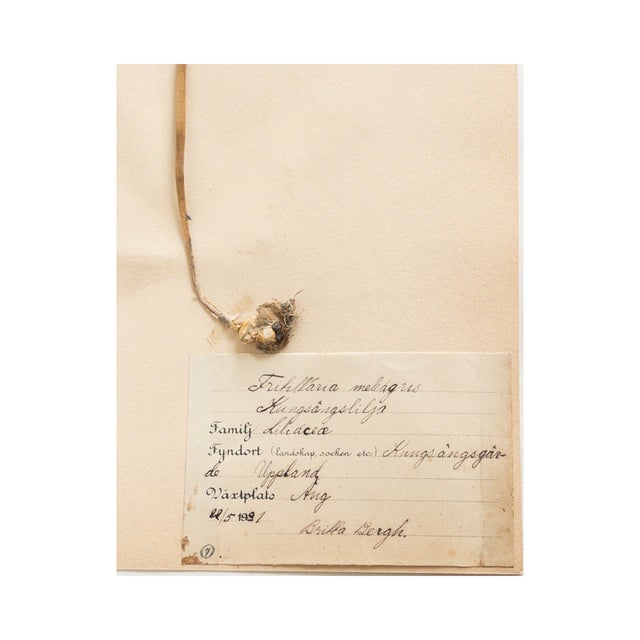 Fritillaria meleagris
Kungsängslilja
Familj Liliaceæ
Fyndort (landskap, socken etc.) Kungsängsgår-
de Uppland
Växtplats Äng
22/5 1931
Britta Bergh.
7